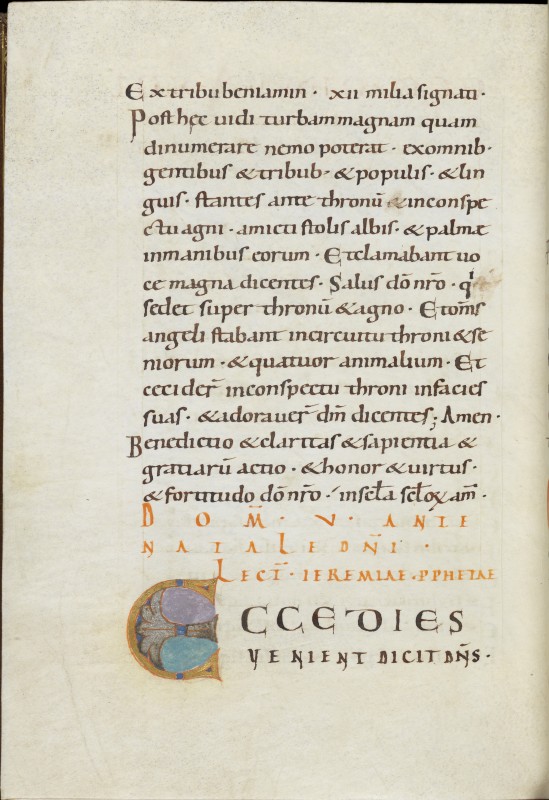 Ex tribu beniamin · xii milia signati ·
Post hęc uidi turbam magnam quam
dinumerare nemo poterat · ex omnib·
gentibus & tribub· & populis · & lin
guis · stantes ante thronū & inconspe
ctu agni · amicti stolis albis · & palmæ
inmanibus eorum · Et clamabant uo
ce magna dicentes · Salus dō nr̄o · qi
sedet super thronū & agno · Et om̄s
angeli stabant incircuitu throni & se
niorum · & quatuor animalium · Et
cecider̄ inconspectu throni infacies
suas · & adorauer̄ dm̄ dicentes; Amen ·
Benedictio & claritas & sapientia &
gratiarū actio · & honor & uirtus ·
& fortitudo dō nr̄o · in sēla sēloꝝ am̄ ·
DOM̄ · V · ANTE
NATALE DN̄I ·
LECT̄ · IEREMIAE · PPHETAE
ECCE DIES
VENIENT DICIT DN̄S ·